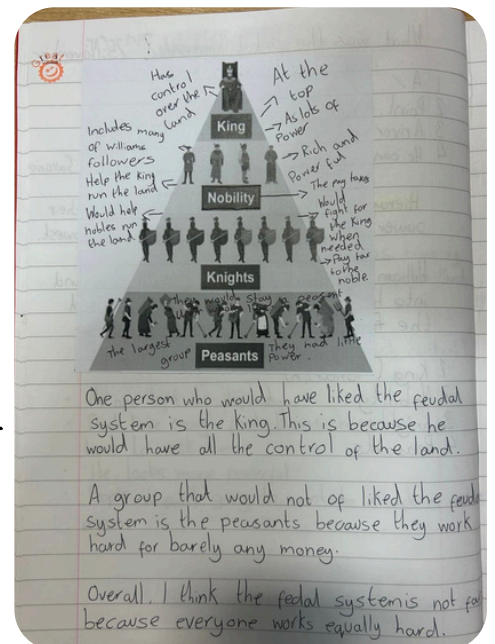 Great
Has
control
over the
land
At the
top
As lots of
power
King
Includes many
of williams
followers
Help the King
run the land
Rich and
Powerful
Nobility
The pay taxes
Would help
nobles run
the land
Would
fight for
the King
when
needed
Pay tax
to the
noble
Knights
They would stay a peasant
The largest
group
Peasants
They had little
Power.
One person who would have liked the feudal
system is the King. This is because he
would have all the control of the land.
A group that would not of liked the feud
system is the peasants because they work
hard for barely any money.
Overall, I think the fedal system is not fa
because everyone works equally hard.